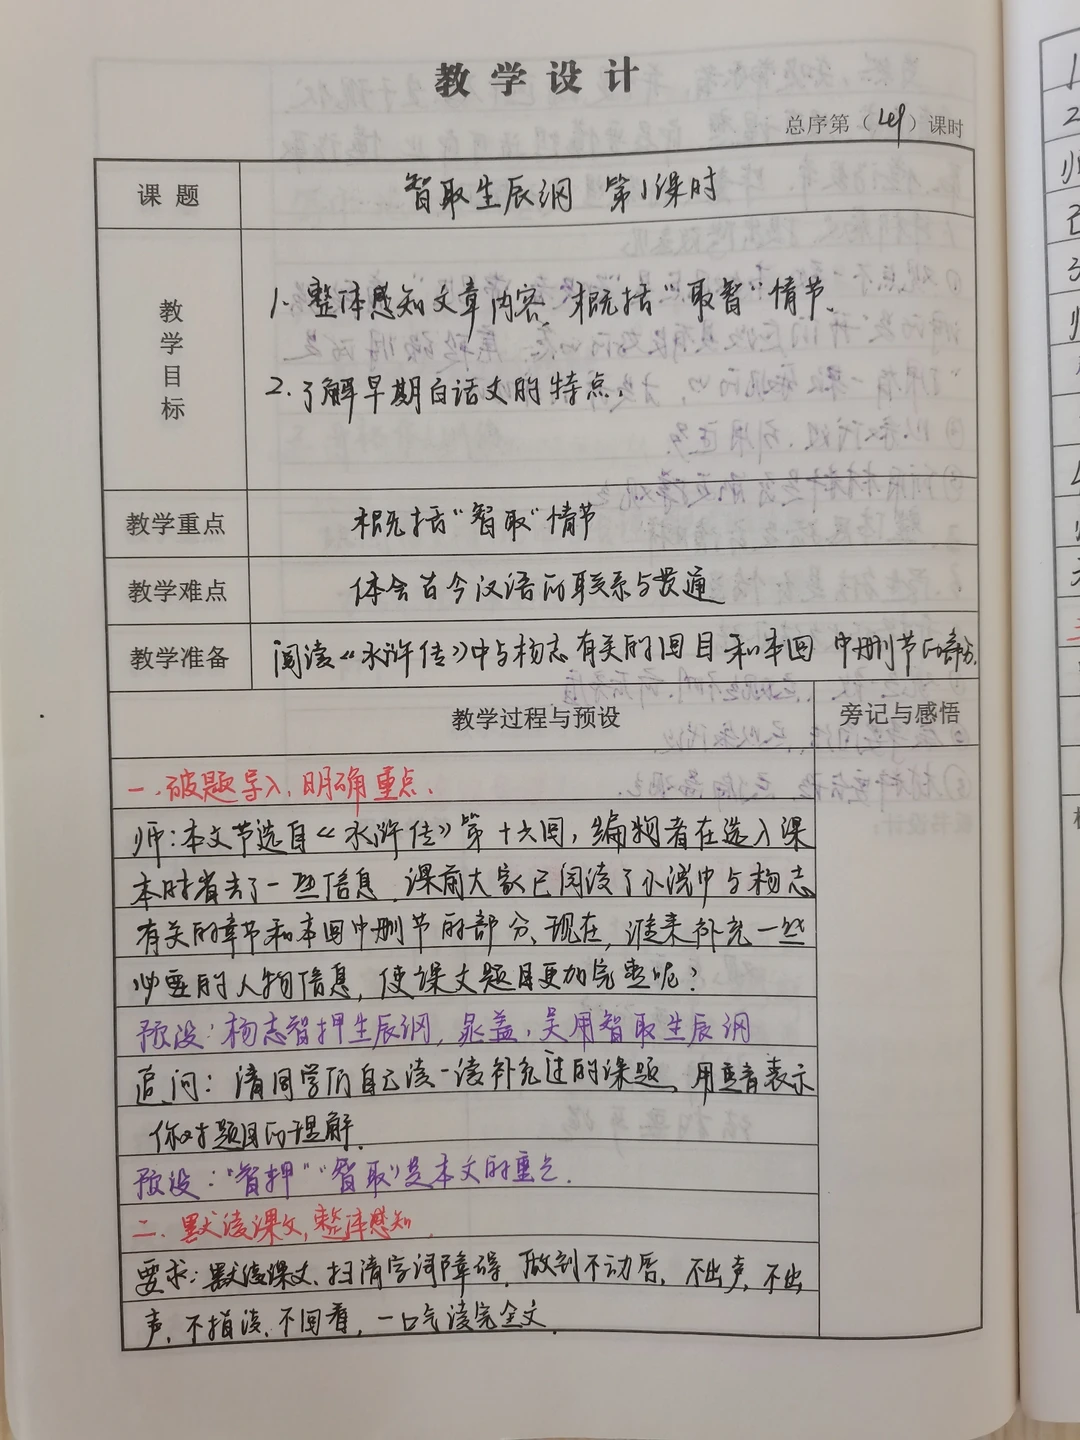 教学设计
总序第（49）课时
课题 智取生辰纲 第1课时
教学目标
1. 整体感知文章内容，概括“取智”情节.
2. 了解早期白话文的特点.
教学重点 概括“智取”情节
教学难点 体会古今汉语的联系与贯通
教学准备 阅读《水浒传》中与杨志有关的回目和本回中删节的部分.
教学过程与预设 旁记与感悟
一. 破题导入, 明确重点.
师：本文节选自《水浒传》第十六回, 编者在选入课
本时省去了一些信息. 课前大家已阅读了小说中与杨志
有关的章节和本回中删节的部分、现在, 谁来补充一些
必要的人物信息, 使课文题目更加完整呢?
预设：杨志智押生辰纲, 晁盖, 吴用智取生辰纲
追问：请同学们自己读一读补充过的课题, 用重音表示
你对题目的理解.
预设：“智押”“智取”是本文的重点.
二. 默读课文, 整体感知.
要求：默读课文、扫清字词障碍. 做到不动唇, 不出声, 不出
声, 不指读, 不回看, 一口气读完全文.